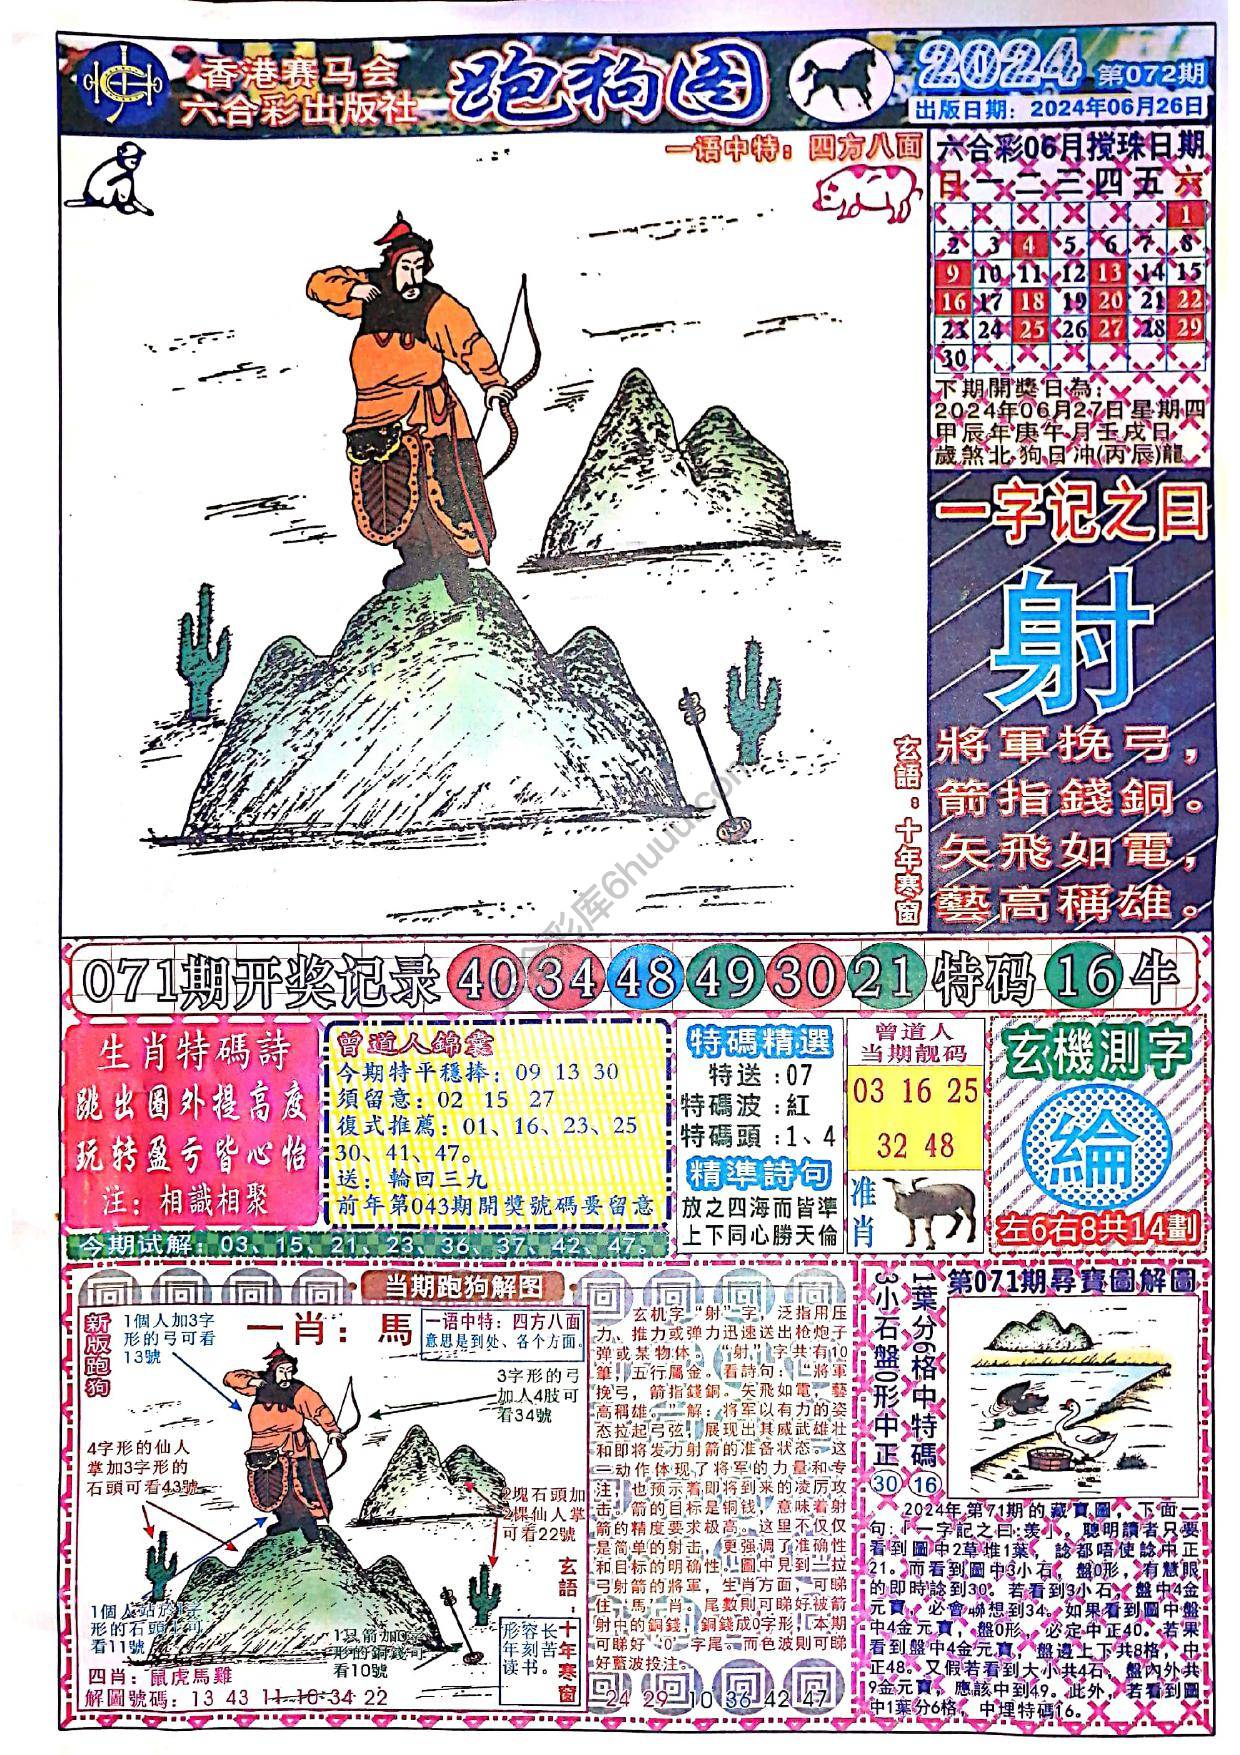 香港赛马会
六合彩出版社
跑狗图
2024 第072期
出版日期：2024年06月26日
一语中特：四方八面
六合彩06月搅珠日期
日一二三四五六
1
2 3 4 5 6 7 8
9 10 11 12 13 14 15
16 17 18 19 20 21 22
23 24 25 26 27 28 29
30
下期開獎日為：
2024年06月27日星期四
甲辰年庚午月壬戌日
歲煞北 狗日冲(丙辰)龍
一字记之曰
射
將軍挽弓，
箭指錢銅。
矢飛如電，
藝高稱雄。
玄語：十年寒窗
071期开奖记录 40 34 48 49 30 21 特码 16 牛
生肖特碼詩
跳出圈外提高度
玩转盈亏皆心怡
注：相識相聚
曾道人錦囊
今期特平穩捧：09 13 30
須留意：02 15 27
復式推薦：01、16、23、25
30、41、47。
送：輪回三九
前年第043期開獎號碼要留意
今期试解：03、15、21、23、36、37、42、47。
特碼精選
特送：07
特碼波：紅
特碼頭：1、4
精準詩句
放之四海而皆準
上下同心勝天倫
曾道人
当期靓码
03 16 25
32 48
准肖
玄機测字
綸
左6右8共14劃
当期跑狗解图
新版跑狗
1個人加3字
形的弓可看
13號
一肖：馬
一语中特：四方八面
意思是到处、各个方面。
3字形的弓
加人4肢可
看34號
4字形的仙人
掌加3字形的
石頭可看43號
2塊石頭加
2棵仙人掌
可看22號
1個人站於1字
形的石頭上可
看11號
1只箭加0字
形的銅錢可
看10號
玄語：十年寒窗
形容长
年刻苦
读书。
四肖：鼠虎馬雞
解圖號碼：13 43 11 10 34 22
玄机字“射”字，泛指用压
力、推力或弹力迅速送出枪炮子
弹或某物体。“射”字共有10
筆，五行属金。看詩句：“將軍
挽弓，箭指錢銅。矢飛如電，藝
高稱雄。”解：将军以有力的姿
态拉起弓弦，展现出其威武雄壮
和即将发力射箭的准备状态。这
一动作体现了将军的力量和专
注，也预示着即将到来的凌厉攻
击。箭的目标是铜钱，意味着射
箭的精度要求极高。这里不仅仅
是简单的射击，更强调了准确性
和目标的明确性。圖中見到一拉
弓射箭的將軍，生肖方面，可睇
住「馬」肖。尾數則可睇好被箭
射中的銅錢，銅錢成0字形，本期
可睇好「0」字尾。而色波則可睇
好藍波投注。
24 29 10 36 42 47
3小石盤0形中正30
1葉分6格中特碼16
第071期尋寶圖解圖
2024年第71期的藏寶圖，下面一
句：「一字記之曰:羡小。聰明讀者只要
看到圖中2草堆1葉，諗都唔使諗中正
21。而看到圖中3小石，盤0形，有慧眼
的即時諗到30。若看到3小石，盤中4金
元寶，必會聯想到34。如果看到圖中盤
中4金元寶，盤0形，必定中正40。若果
看到盤中4金元寶，盤邊上下共8格，中
正48。又假若看到大小共4石，盤內外共
9金元寶，應該中到49。此外，若看到圖
中1葉分6格，中埋特碼16。